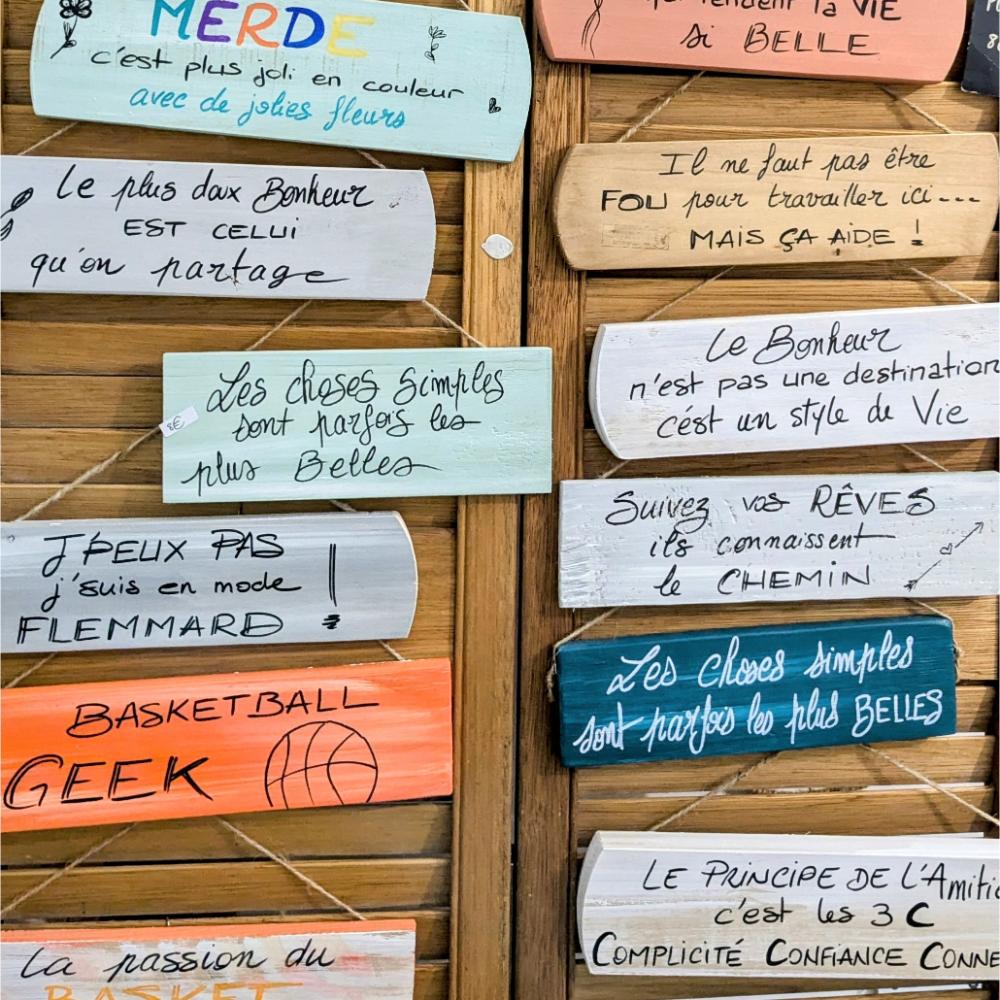 MERDE
c'est plus joli en couleur
avec de jolies fleurs
Le plus doux Bonheur
EST CELUI
qu'on partage
Les choses simples
sont parfois les
plus Belles
8€
J'PEUX PAS
j'suis en mode
FLEMMARD !
BASKETBALL
GEEK
La passion du
BASKET
qui rendent la VIE
si BELLE
Il ne faut pas être
FOU pour travailler ici...
MAIS ÇA AIDE !
Le Bonheur
n'est pas une destination
c'est un style de Vie
Suivez vos RÊVES
ils connaissent
le CHEMIN
Les choses simples
sont parfois les plus BELLES
LE PRINCIPE DE L'Amitié
c'est les 3 C
COMPLICITÉ CONFIANCE CONNE